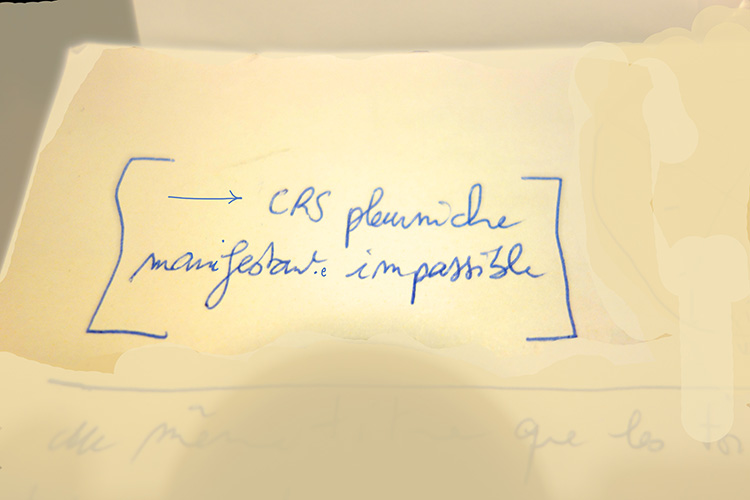 [ → CRS pleurniche
manifestant.e impassible ]
du même titre que les